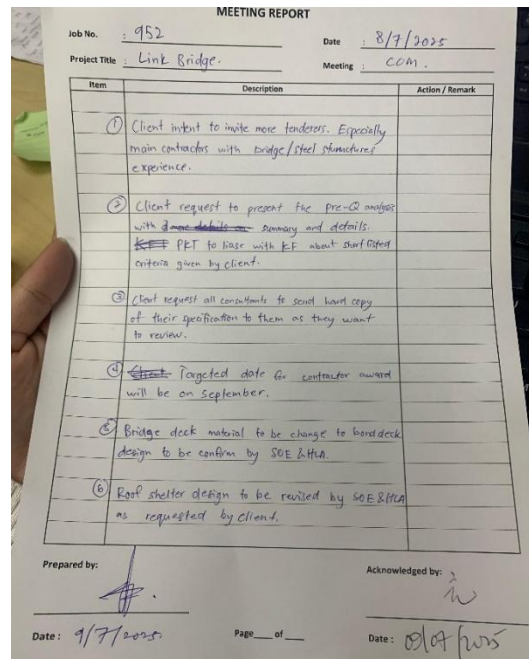 MEETING REPORT
Job No. : 952
Date : 8/7/2025
Project Title : Link Bridge.
Meeting : COM.
Item Description Action / Remark
① Client intent to invite more tenderers. Especially
main contractors with bridge/steel structures
experience.
② Client request to present the pre-Q analysis
with summary and details.
PKT to liase with KF about short listed
criteria given by client.
③ Client request all consultants to send hard copy
of their specification to them as they want
to review.
④ Targeted date for contractor award
will be on September.
⑤ Bridge deck material to be change to bondeck
design to be confirm by SOE & HLA.
⑥ Roof shelter design to be revised by SOE & HLA
as requested by client.
Prepared by:
Acknowledged by:
Date : 9/7/2025
Page___of___
Date : 09/07/2025